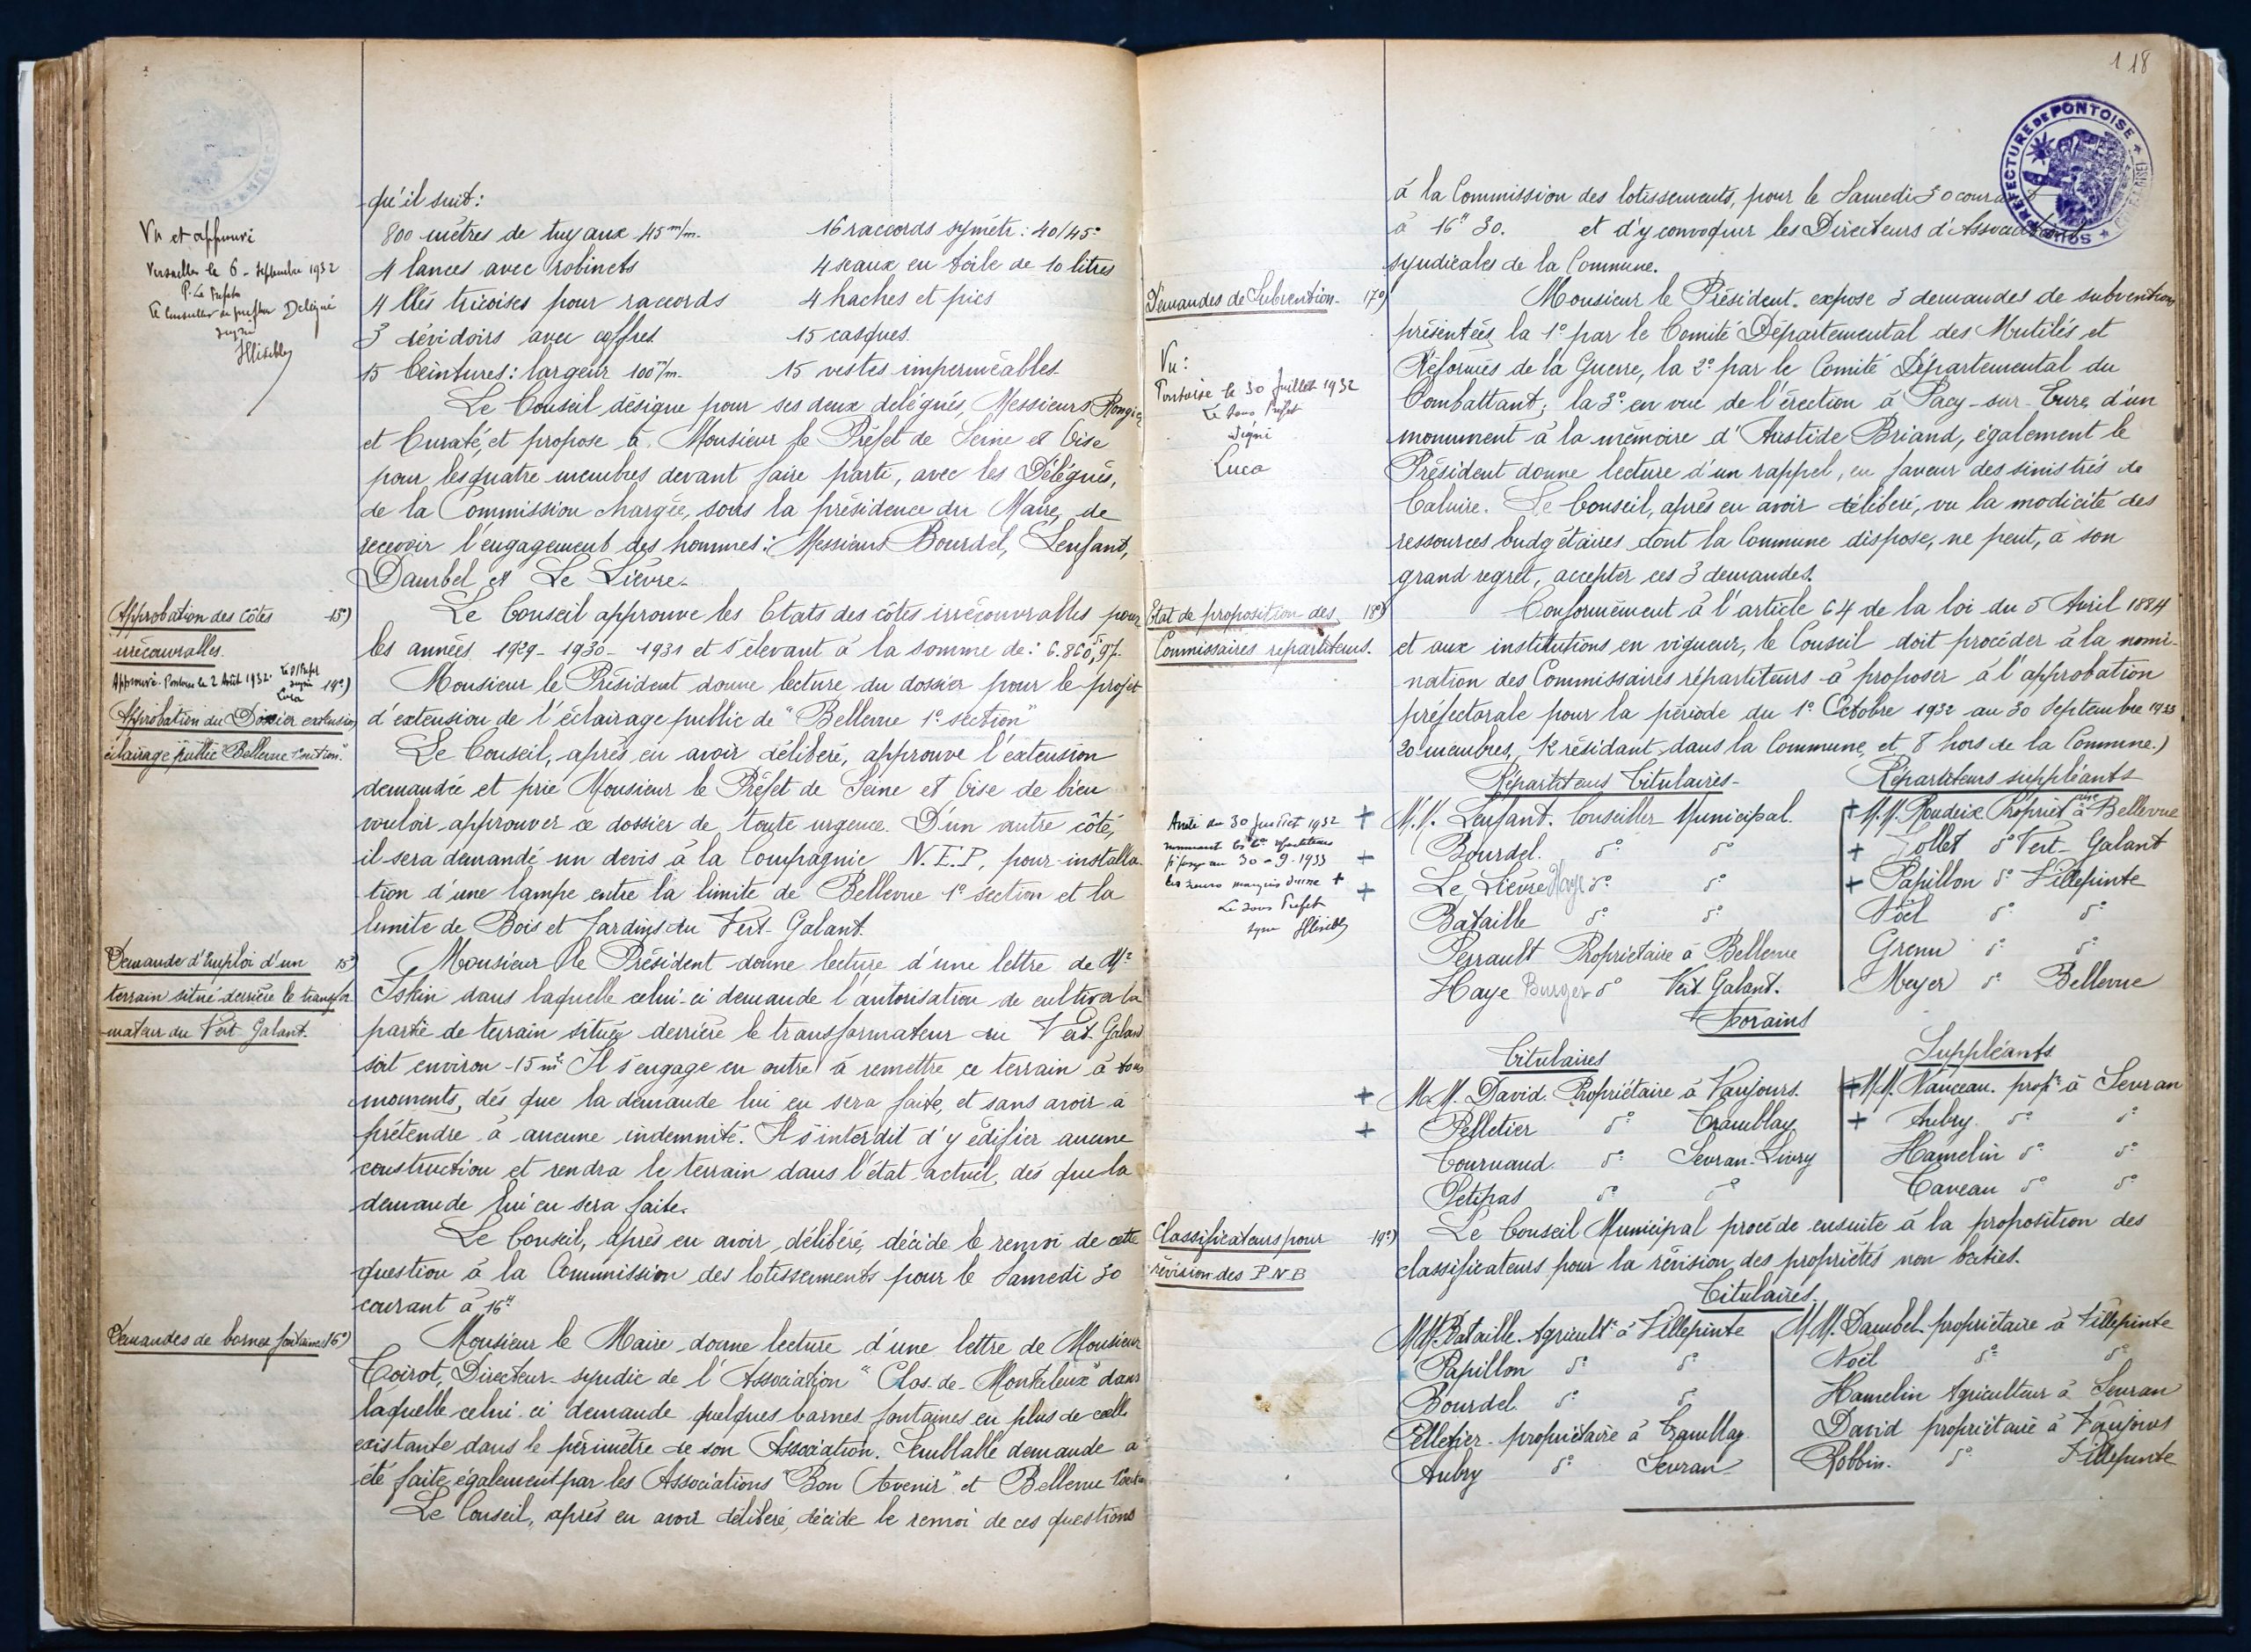 qu'il suit:
800 mètres de tuyaux 45 m/m. 16 raccords symétr: 40/45°
4 lances avec robinets 4 seaux en toile de 10 litres
4 clés tricoises pour raccords 4 haches et pics
3 dévidoirs avec coffres 15 casques.
15 Ceintures: largeur 100 m/m. 15 vestes imperméables
Vu et approuvé
Versailles le 6 - Septembre 1932
P. Le Préfet
le Conseiller de préfecture Délégué
signé
Illisible
Le Conseil désigne pour ses deux délégués, Messieurs
et Curaté, et propose à Monsieur le Préfet de Seine et Oise
pour les quatre membres devant faire partie, avec les Délégués,
de la Commission chargée, sous la présidence du Maire, de
recevoir l'engagement des hommes: Messieurs Bourdel, Lenfant,
Daubel et Le Lièvre.
Approbation des Côtes 13°)
irrécouvrables.
Approuvé. Pontoise le 2 Août 1932. Le S/Préfet
signé
Luca
Le Conseil approuve les Etats des côtes irrécouvrables pour
les années 1929 - 1930 - 1931 et s'élevant à la somme de: 6.860,97.
14°)
Approbation du Dossier extension
éclairage public "Bellevue 1° section".
Monsieur le Président donne lecture du dossier pour le projet
d'extension de l'éclairage public de "Bellevue 1° section"
Le Conseil, après en avoir délibéré, approuve l'extension
demandée et prie Monsieur le Préfet de Seine et Oise de bien
vouloir approuver ce dossier de toute urgence. D'un autre côté,
il sera demandé un devis à la Compagnie N.E.P. pour installa-
tion d'une lampe entre la limite de Bellevue 1° section et la
limite de Bois et Jardins du Vert-Galant.
Demande d'Emploi d'un 15°)
terrain situé derrière le transfor
mateur du Vert Galant.
Monsieur le Président donne lecture d'une lettre de Mr
Iskin dans laquelle celui-ci demande l'autorisation de cultiver la
partie de terrain située derrière le transformateur du Vert Galant
soit environ 15 m². Il s'engage en outre à remettre ce terrain à tous
moments, dès que la demande lui en sera faite, et sans avoir à
prétendre à aucune indemnité. Il s'interdit d'y édifier aucune
construction et rendra le terrain dans l'état actuel, dès que la
demande lui en sera faite.
Le Conseil, après en avoir délibéré, décide le renvoi de cette
question à la Commission des lotissements pour le Samedi 30
courant à 16H
Demandes de bornes fontaines 16°)
Monsieur le Maire donne lecture d'une lettre de Monsieur
Coirot, Directeur-syndic de l'Association "Clos-de-Montceleux" dans
laquelle celui-ci demande quelques bornes fontaines en plus de celle
existante dans le périmètre de son Association. Semblable demande a
été faite également par les Associations "Bon Avenir" et Bellevue
Le Conseil, après en avoir délibéré, décide le renvoi de ces questions
118
SOUS-PREFECTURE DE PONTOISE
à la Commission des lotissements, pour le Samedi 30 courant
à 16H 30. et d'y convoquer les Directeurs d'Associations
syndicales de la Commune.
Demandes de Subvention. 17°)
Vu:
Pontoise le 30 Juillet 1932
Le Sous Préfet
Signé
Luca
Monsieur le Président expose 3 demandes de subvention
présentées, la 1° par le Comité Départemental des Mutilés et
Réformés de la Guerre, la 2° par le Comité Départemental du
Combattant; la 3° en vue de l'érection à Pacy-sur-Eure, d'un
monument à la mémoire d'Aristide Briand, également le
Président donne lecture d'un rappel, en faveur des sinistrés de
Caluire. Le Conseil, après en avoir délibéré, vu la modicité des
ressources budgétaires dont la Commune dispose, ne peut, à son
grand regret, accepter ces 3 demandes.
Etat de proposition des 18°)
Commissaires répartiteurs.
Conformément à l'article 64 de la loi du 5 Avril 1884
et aux institutions en vigueur, le Conseil doit procéder à la nomi-
nation des Commissaires répartiteurs à proposer à l'approbation
préfectorale pour la période du 1° Octobre 1932 au 30 Septembre 1933
20 membres, 12 résidant dans la Commune et 8 hors de la Commune.)
Répartiteurs Titulaires - Répartiteurs suppléants
Arrêté du 30 Juillet 1932
nommant les Cres répartiteurs
jusqu'au 30-9-1933
les noms marqués d'une +
Le Sous Préfet
signé Illisible
+ M.M. Lenfant. Conseiller Municipal. + M.M. Roudeix Propriétre à Bellevue
+ Bourdel. d° d° + Zollet d° Vert-Galant
+ Le Lièvre Haye d° d° + Papillon d° Villepinte
Bataille d° d° Noël d° d°
Perrault Propriétaire à Bellevue Grenu d° d°
Haye Burger d° Vert Galant. Meyer d° Bellevue
Forains
Titulaires Suppléants
+ M.M. David. Propriétaire à Vaujours. + M.M. Nanceau. propre à Sevran
+ Pelletier d° Tremblay + Aubry. d° d°
Cournaud. d° Sevran-Livry Hamelin d° d°
Petipas d° d° Caveau d° d°
Classificateurs pour 19°)
révision des P N B
Le Conseil Municipal procède ensuite à la proposition des
classificateurs pour la révision des propriétés non bâties.
Titulaires.
M.M. Bataille. Agricultr à Villepinte M.M. Daubel. propriétaire à Villepinte
Papillon d° d° Noël d° d°
Bourdel d° d° Hamelin Agriculteur à Sevran
Pelletier. propriétaire à Tremblay David propriétaire à Vaujours
Aubry d° Sevran Robbin. d° Villepinte